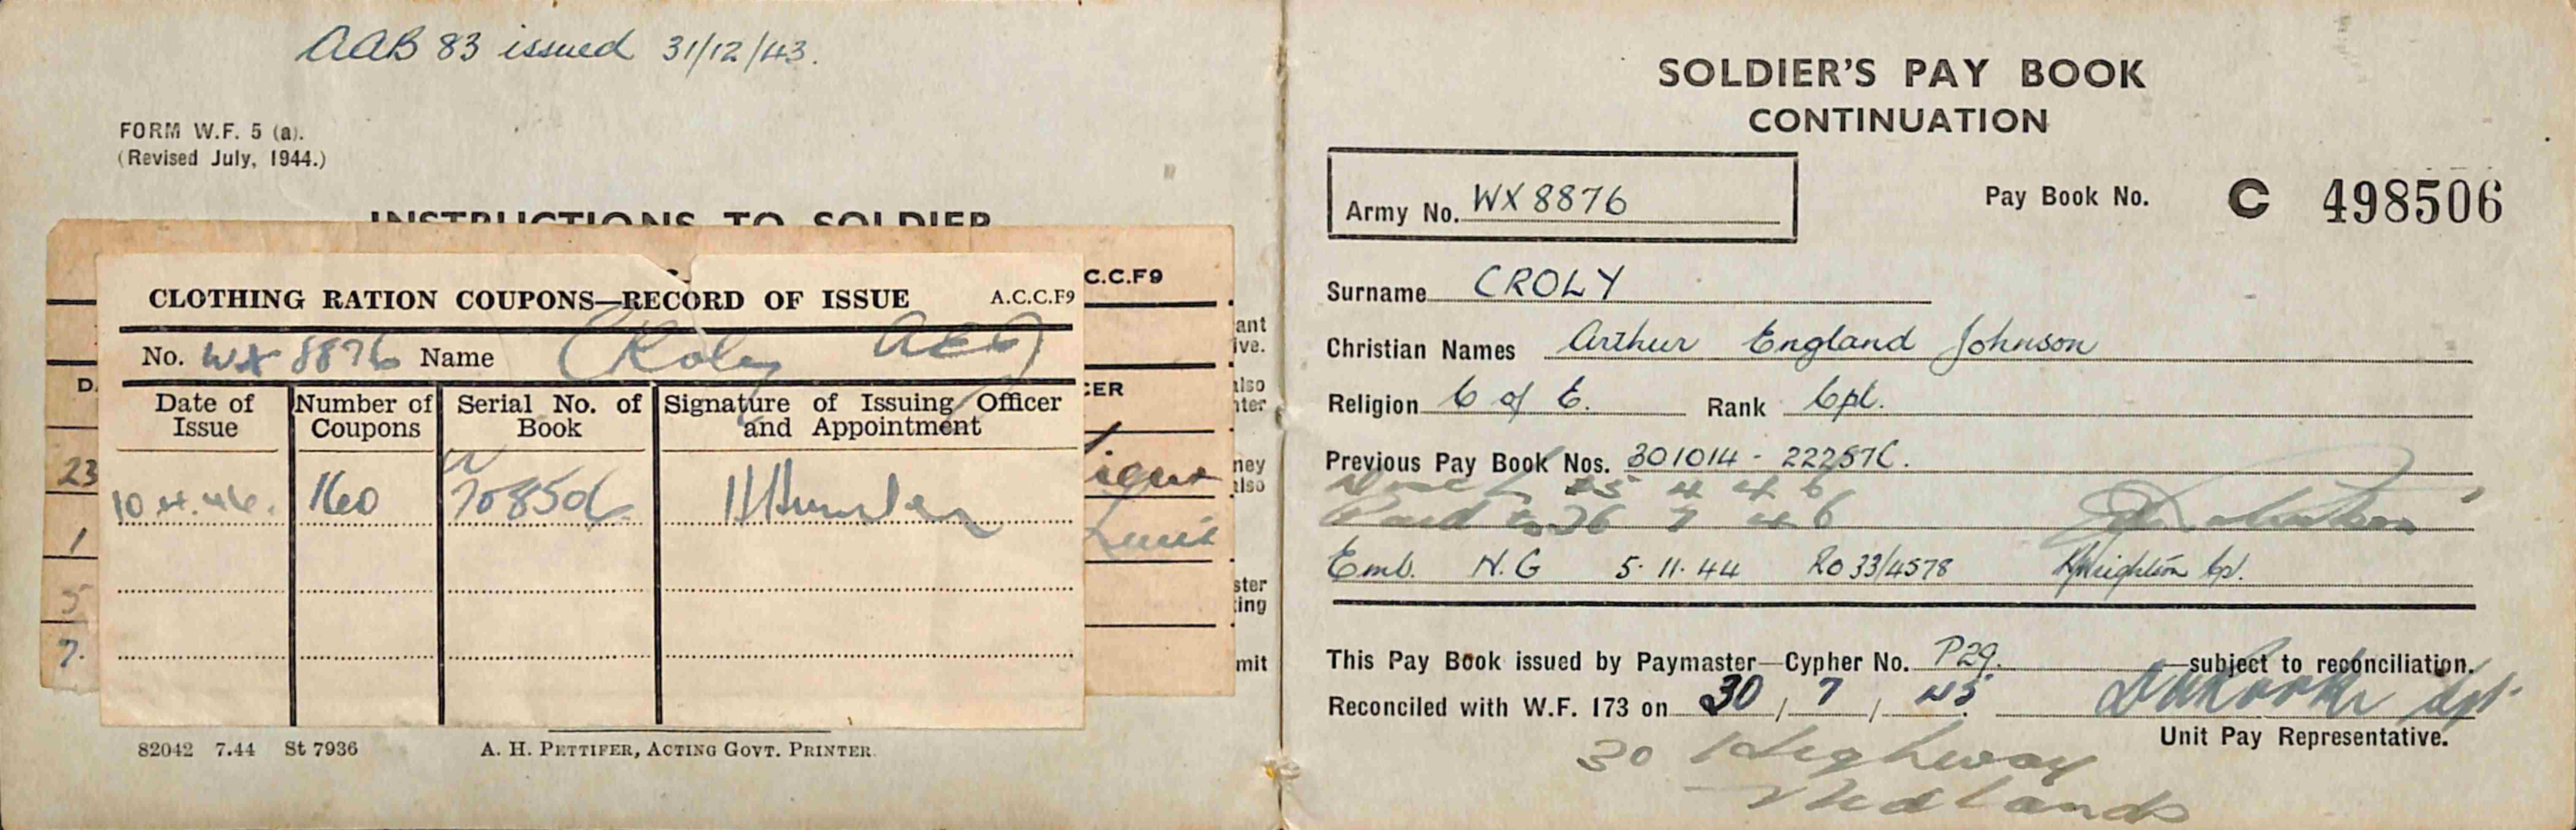 AAB 83 issued 31/12/43.
FORM W.F. 5 (a).
(Revised July, 1944.)
INSTRUCTIONS TO SOLDIER
C.C.F9
CLOTHING RATION COUPONS—RECORD OF ISSUE A.C.C.F9
No. WX 8876 Name Croly AEJ
Date of Issue Number of Coupons Serial No. of Book Signature of Issuing Officer and Appointment
10.4.46. 160
23
1
5
7.
ant
ive.
also
nter
CER
ney
also
ster
ting
mit
82042 7.44 St 7936 A. H. PETTIFER, ACTING GOVT. PRINTER
SOLDIER'S PAY BOOK
CONTINUATION
Army No. WX 8876 Pay Book No. C 498506
Surname CROLY
Christian Names Arthur England Johnson
Religion C of E. Rank Cpl.
Previous Pay Book Nos. 301014 - 222576.
25 4 46
Paid to 26 7 46
Emb. N.G 5.11.44 Ro 33/4578 Cpl.
This Pay Book issued by Paymaster—Cypher No. P29. —subject to reconciliation.
Reconciled with W.F. 173 on 30 / 7 / 45
Unit Pay Representative.
30 Highway
Nedlands